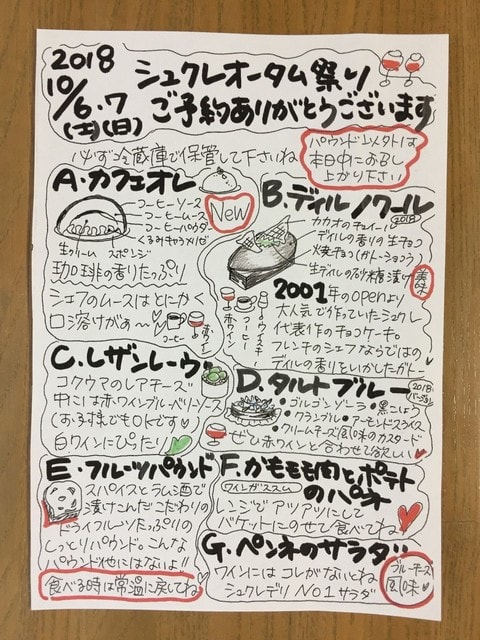 2018
10/6.7
(土)(日)
シュクレオータム祭り
ご予約ありがとうございます
必ず冷蔵庫で保管して下さいね
パウンド以外は
本日中にお召し
上がり下さい
A.カフェオレ
New
コーヒーソース
コーヒームース
コーヒーパウダー
くるみキャラメリゼ
生クリーム スポンジ
珈琲の香りたっぷり
シェフのムースはとにかく
口溶けがぁ〜
コーヒー
赤ワイン
B.ディルノワール
2018
カカオのチュイール
ディルの香りの生チョコ
焼チョコ(ガトーショコラ)
生ディルの砂糖漬け
美味
赤ワイン
コーヒー
ウィスキー
2001年のopenより
大人気で作っていたシュクレ
代表作のチョコケーキ。
フレンチのシェフならではの
ディルの香りをいかしたガトー
C.レザンレーヴ
コクウマのレアチーズ
中には赤ワインブルーベリーソース
(お子様でもOKです♥)
白ワインにぴったり
D.タルトブルー
2018バージョン
・ゴルゴンゾーラ・黒こしょう
・クランブル・アーモンドスライス
・クリームチーズ風味のカスタード
ぜひ赤ワインと合わせて欲しい♡
E.フルーツパウンド
スパイスとラム酒で
漬けこんだこだわりの
ドライフルーツたっぷりの
しっとりパウンド。こんな
パウンド他にはないよ!!
食べる時は常温に戻してね
F.かももも肉とポテト
のパネ
ワインがススム
レンジでアツアツにして
バゲットにのせて食べてね
G.ペンネのサラダ
ワインにはコレがないとね
シュクレデリNO1サラダ
ブルーチーズ
風味